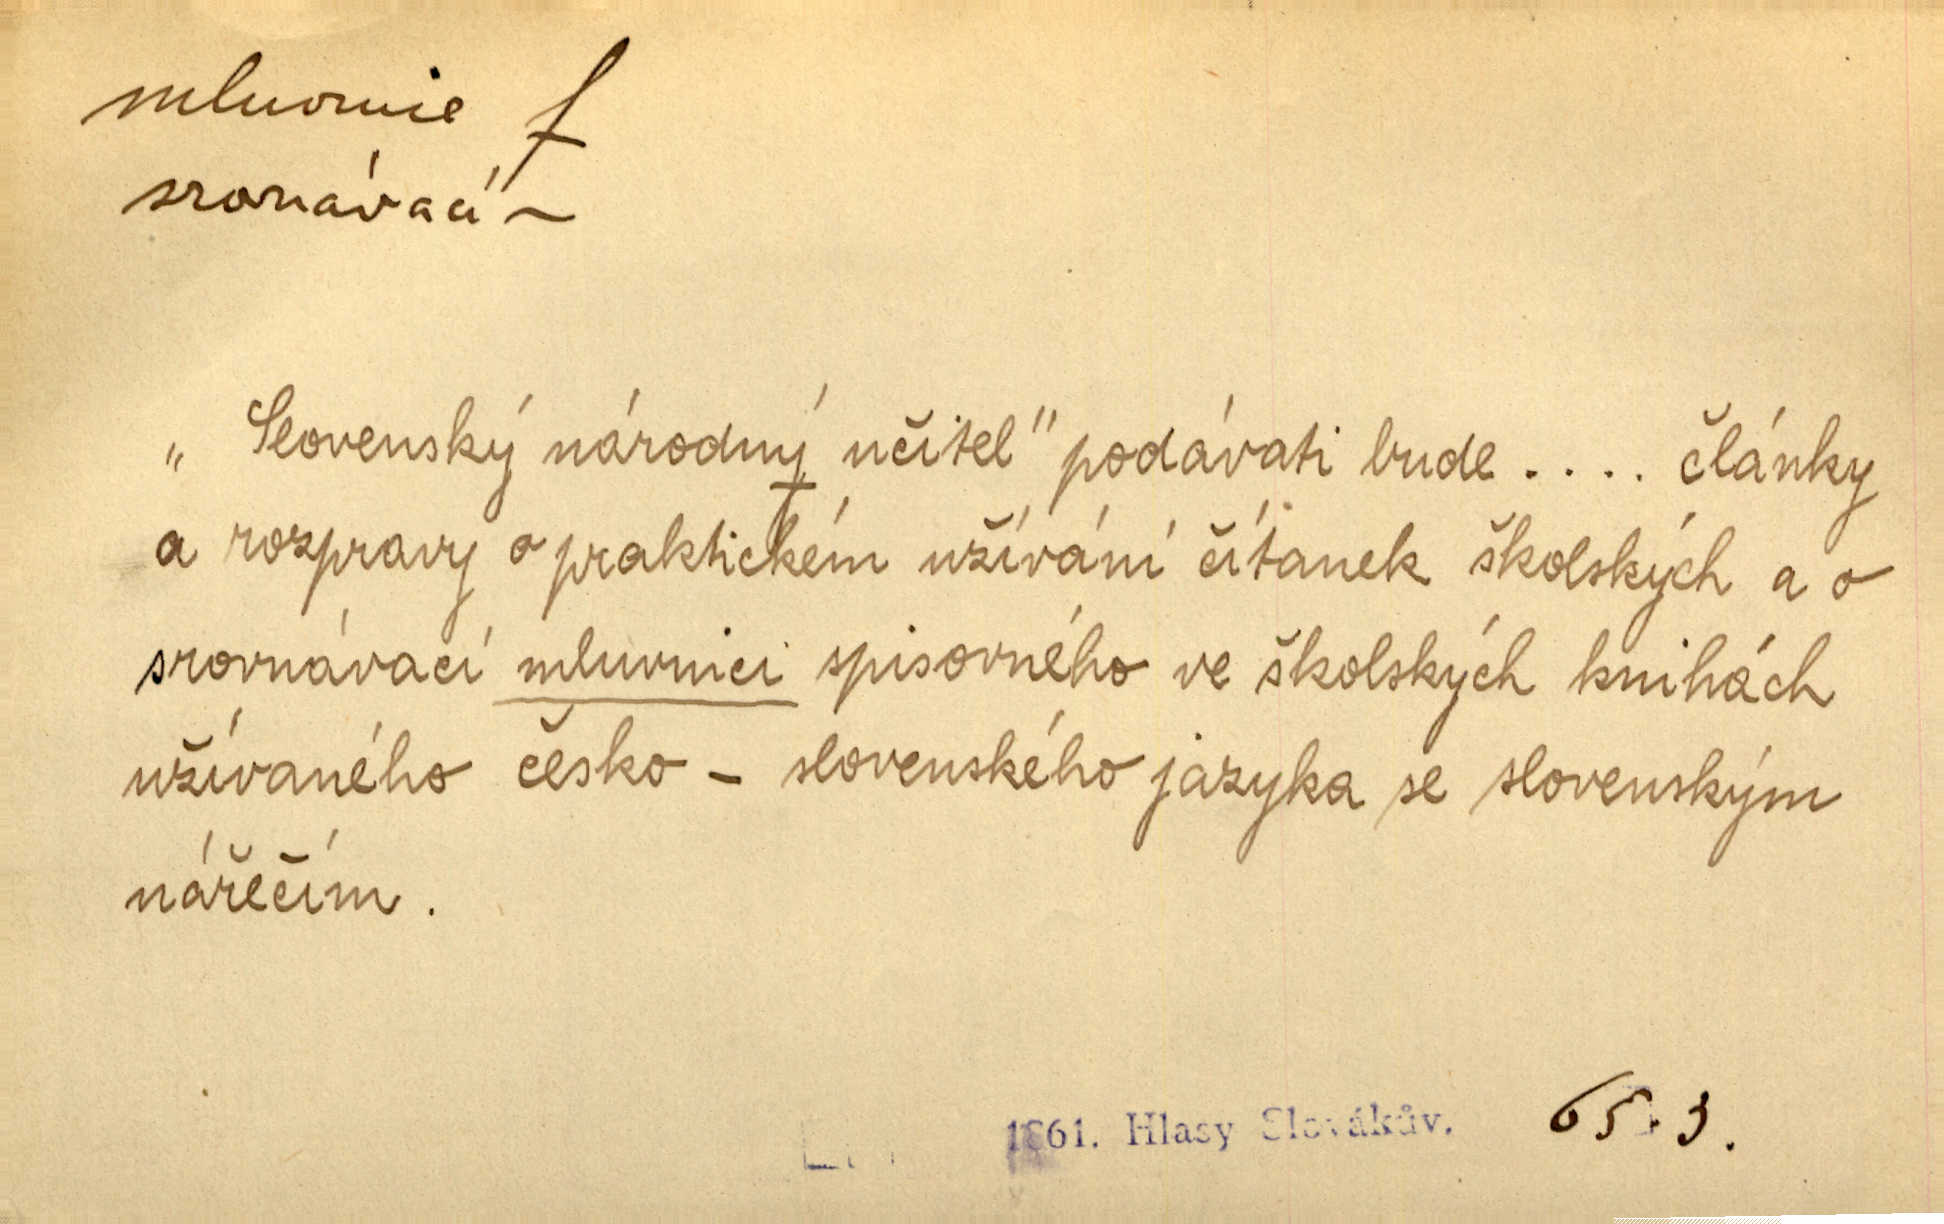 mluvnice f
srovnávací ~
„Slovenský národný učitel" podávati bude .... články
a rozpravy o praktickém užívání čítanek školských a o
srovnávací mluvnici spisovného ve školských knihách
užívaného česko - slovenského jazyka se slovenským
nářečím.
1861. Hlasy Slovákův. 65.3.